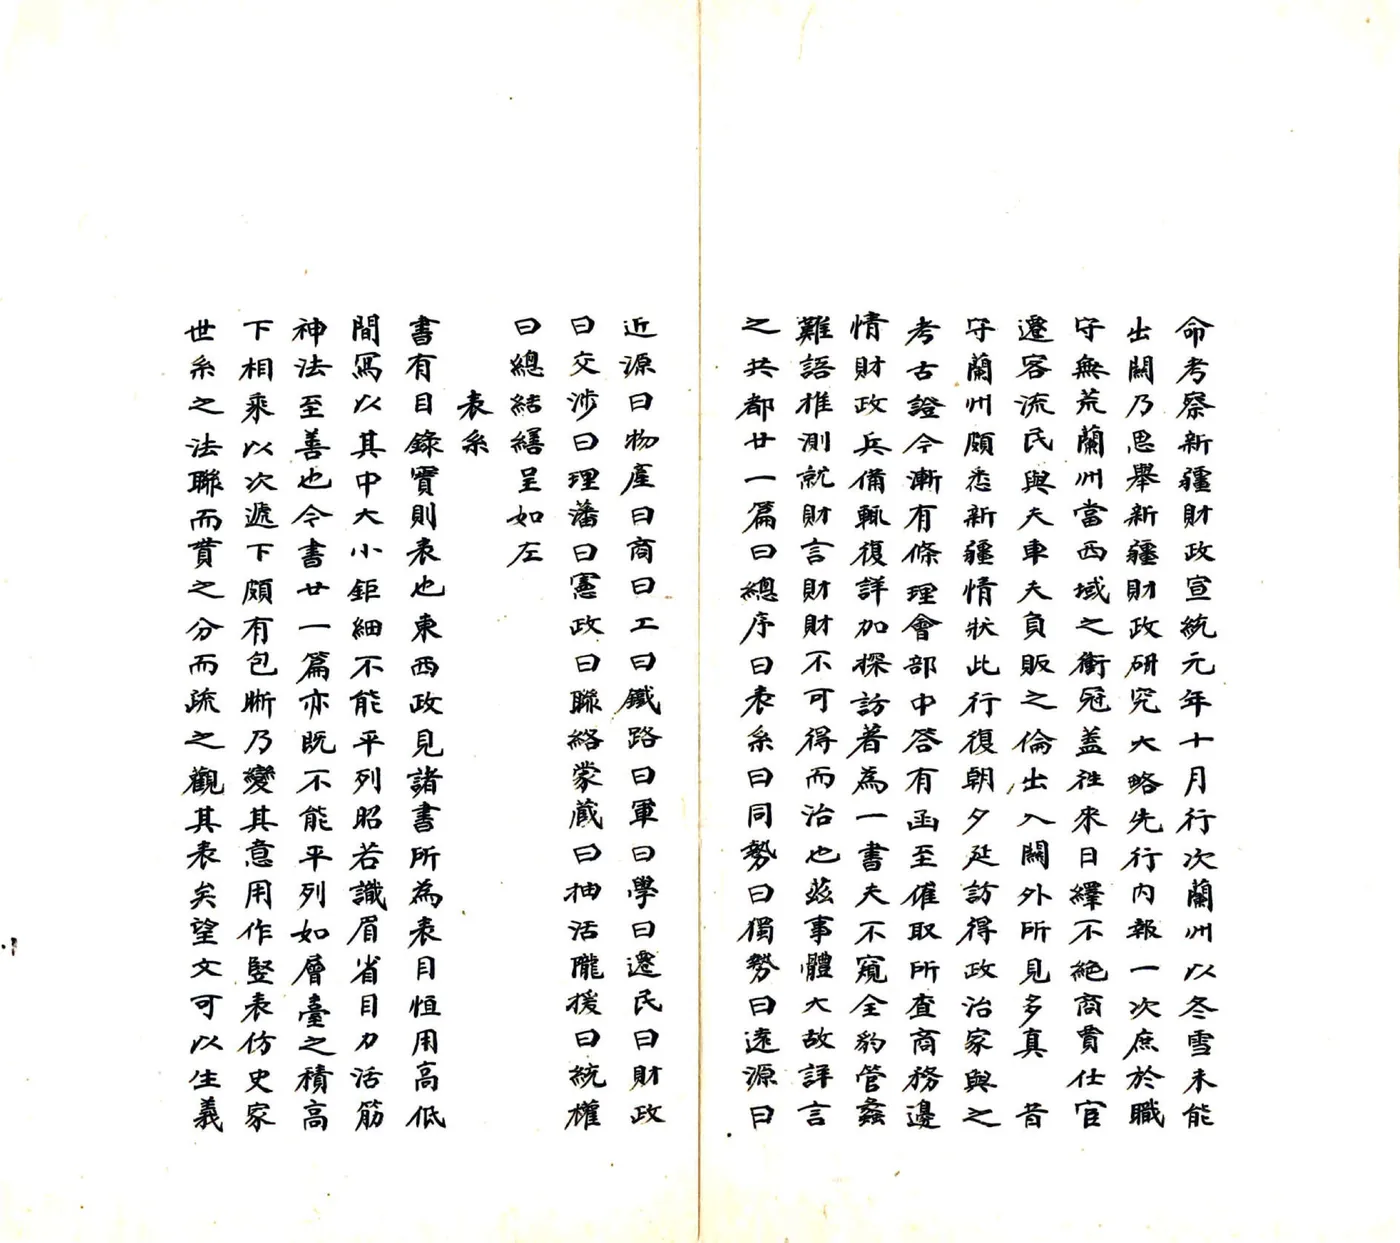 命考察新疆財政宣統元年十月行次蘭州以冬雪未能
出關乃思舉新疆財政研究大略先行內報一次庶於職
守無荒蘭州當西域之衝冠蓋往來日繹不絕商賈仕官
遷客流民與夫車夫負販之倫出入關外所見多真 昔
守蘭州頗悉新疆情狀此行復朝夕延訪得政治家與之
考古證今漸有條理會部中答有函至催取所查商務邊
情財政兵備輒復詳加探訪著為一書夫不窺全豹管蠡
難語推測就財言財財不可得而治也茲事體大故詳言
之共都廿一篇曰總序曰表系曰同勢曰獨勢曰遠源曰
近源曰物產曰商曰工曰鐵路曰軍曰學曰遷民曰財政
曰交涉曰理藩曰憲政曰聯絡蒙藏曰抽活隴援曰統權
曰總結繕呈如左
表系
書有目錄實則表也東西政見諸書所為表目恒用高低
間寫以其中大小鉅細不能平列昭若識眉省目力活筋
神法至善也今書廿一篇亦既不能平列如層臺之積高
下相乘以次遞下頗有包斷乃變其意用作竪表仿史家
世系之法聯而貫之分而疏之觀其表矣望文可以生義